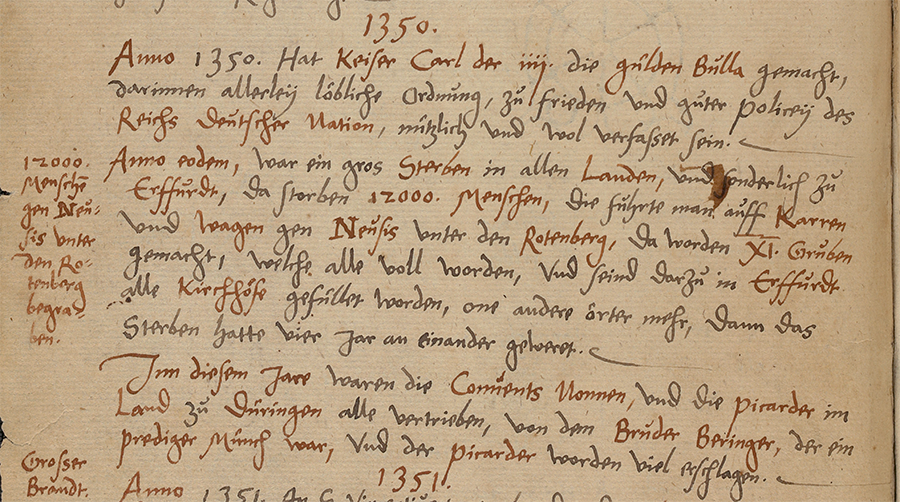 1350.
Anno 1350. Hat Keiser Carl der iiij. die gülden Bulla gemacht,
darinnen allerley löbliche Ordnung, zu frieden und guter policey des
Reichs Deutscher Nation, nützlich und wol verfasset sein.
Anno eodem, war ein gros Sterben in allen Landen, und sonderlich zu
Erffurdt, da storben 12000. Menschen, die fuhrte man auff Karren
und wagen gen Neusis unter den Rotenberg, Da worden XI. Gruben
gemacht, welche alle voll worden, Vnd seind darzu in Erffurdt
alle Kirchhöfe gefüllet worden, one andere örter mehr, Dann das
Sterben hatte vier Jar an einander geweret.
12000.
Menschē
gen Neu-
sis unter
den Ro-
tenberg
begra-
ben.
Inn diesem Jare waren die Conuents Nonnen, und die picarder im
Land zu Düringen alle vertrieben, von dem Bruder Beringer, der ein
prediger Münch war, Vnd der picarder worden viel erschlagen.
1351.
Grosser
Brandt.
Anno 1351.